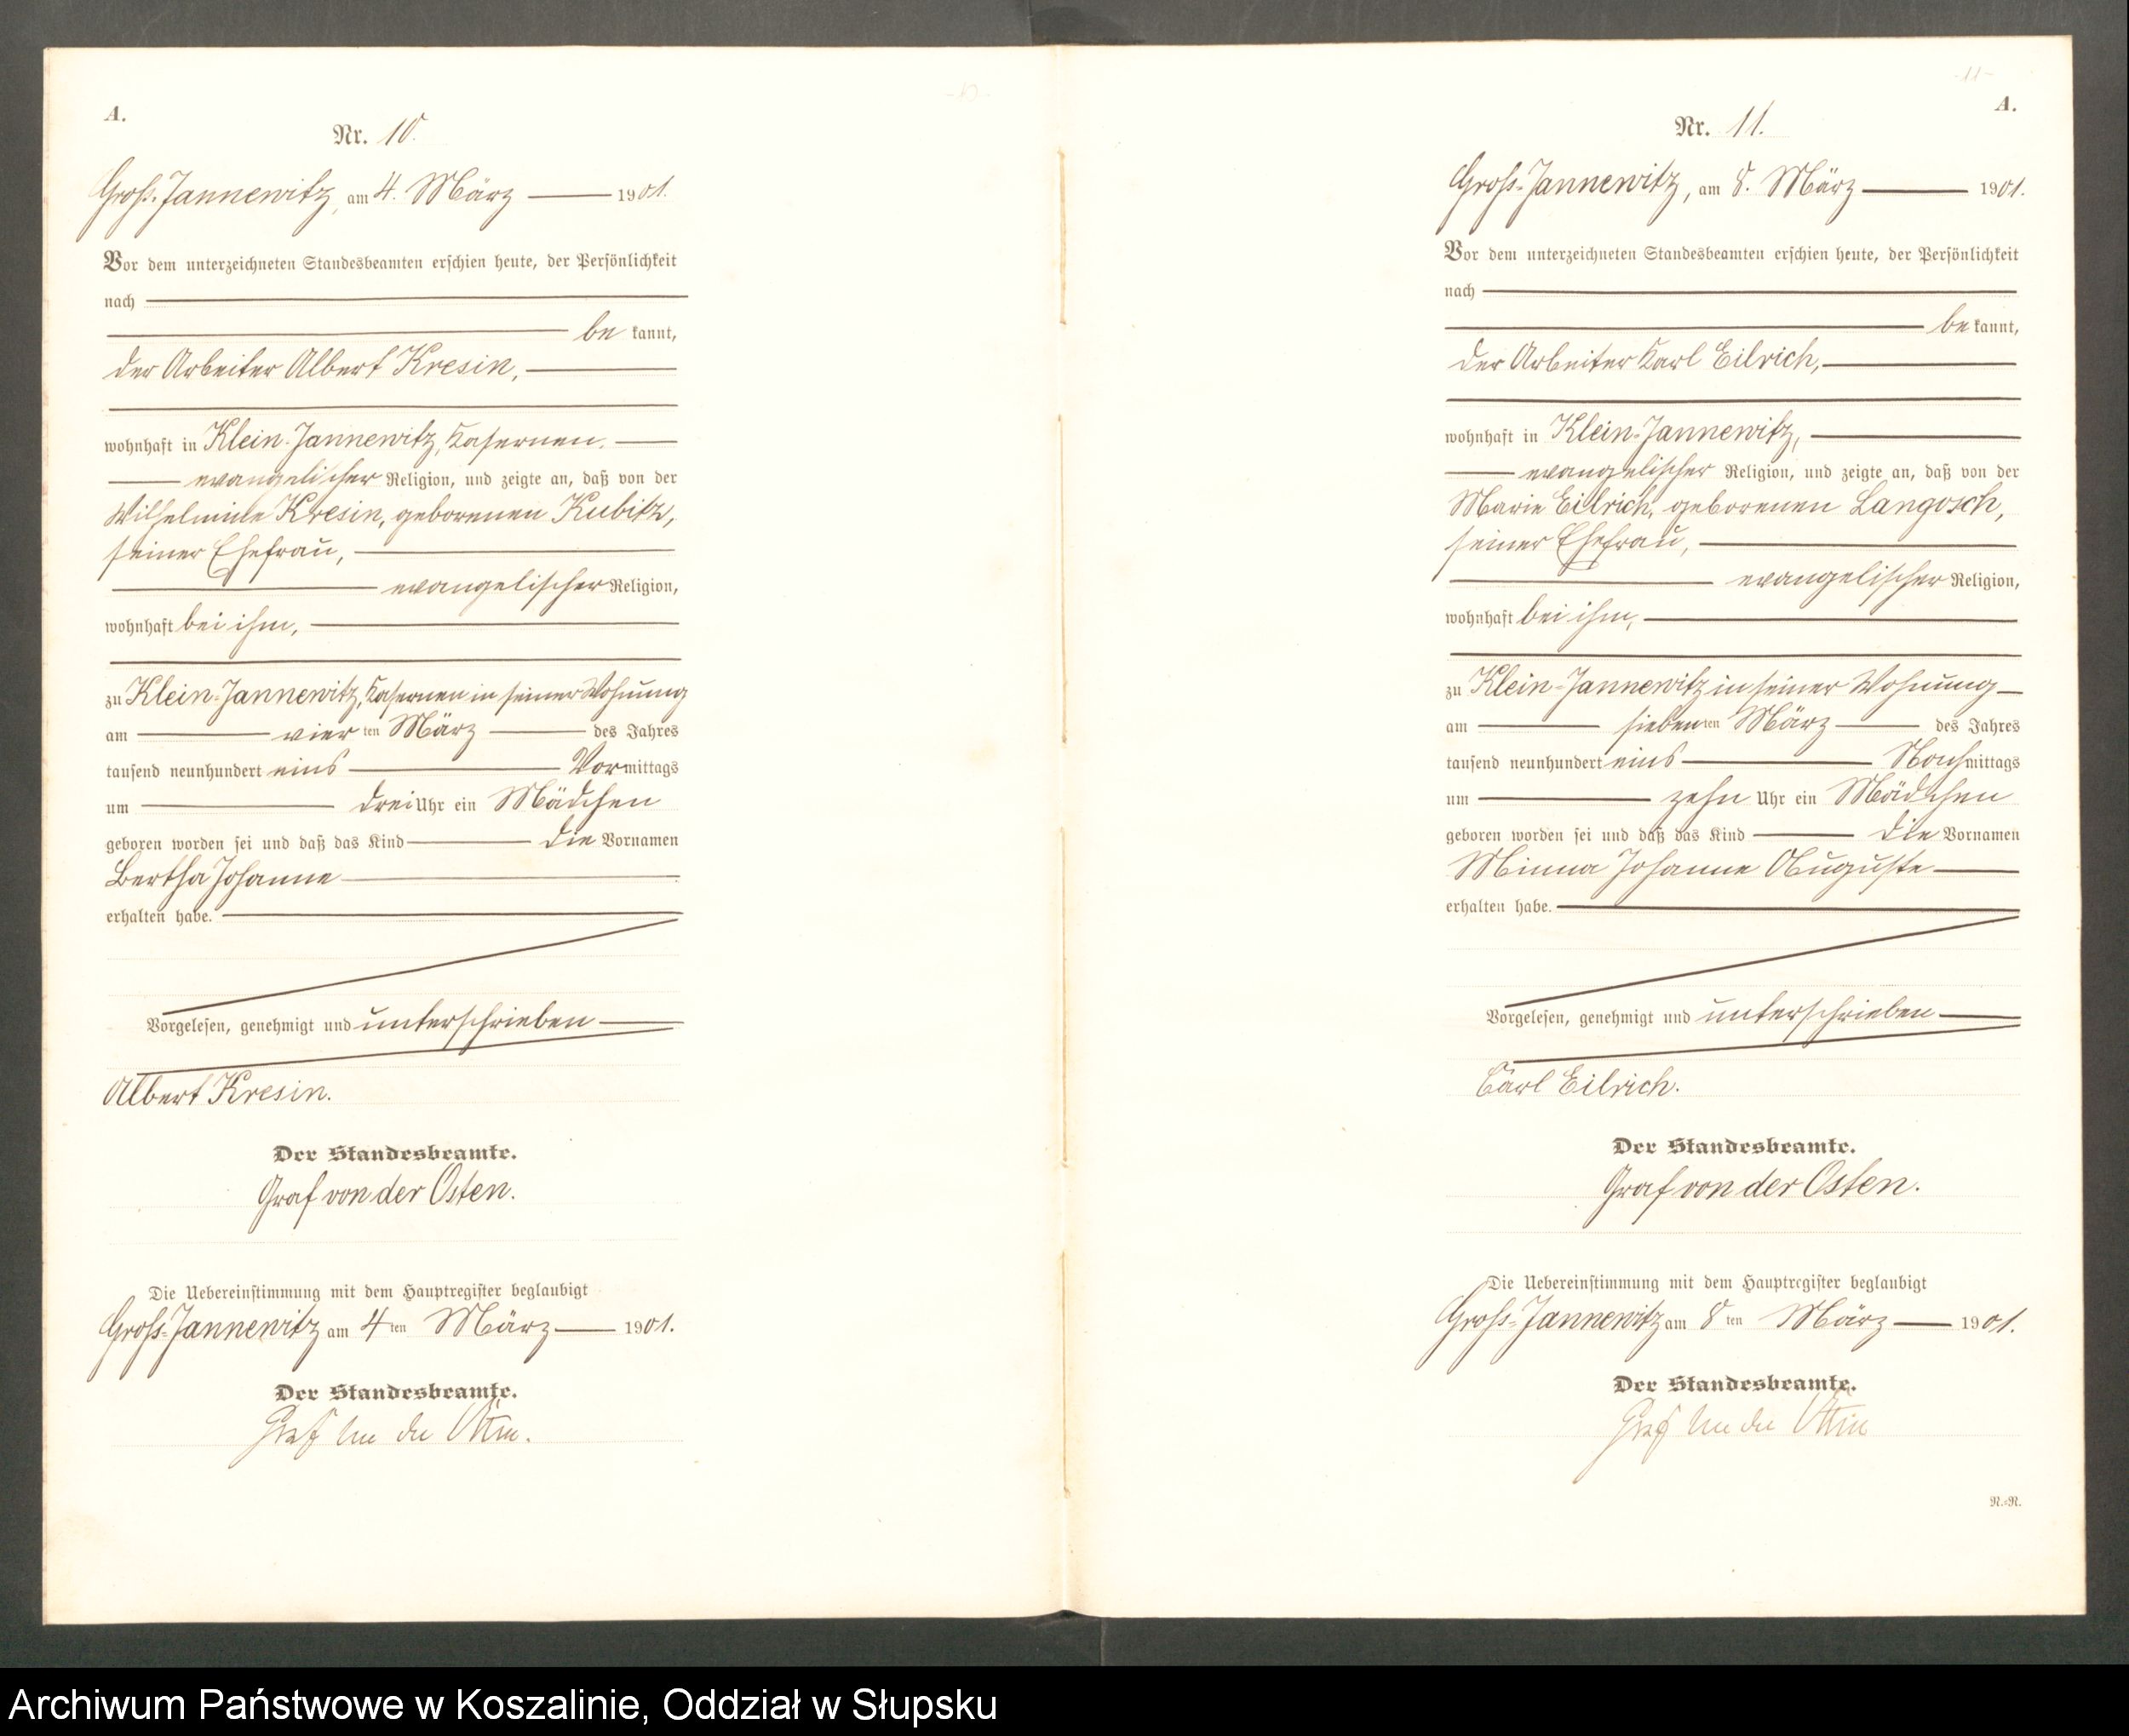 A.
Nr. 10.
Groß-Jannewitz, am 4. März 1901.
Vor dem unterzeichneten Standesbeamten erschien heute, der Persönlichkeit
nach
be kannt,
der Arbeiter Albert Kresin,
wohnhaft in Klein-Jannewitz, Kasernen.
evangelischer Religion, und zeigte an, daß von der
Wilhelmine Kresin, geborenen Kubitz,
seiner Ehefrau,
evangelischer Religion,
wohnhaft bei ihm,
zu Klein-Jannewitz, Kasernen in seiner Wohnung
am vier ten März des Jahres
tausend neunhundert eins Vormittags
um drei Uhr ein Mädchen
geboren worden sei und daß das Kind die Vornamen
Bertha Johanne
erhalten habe.
Vorgelesen, genehmigt und unterschrieben
Albert Kresin.
Der Standesbeamte.
Graf von der Osten.
Die Uebereinstimmung mit dem Hauptregister beglaubigt
Groß-Jannewitz am 4 ten März 1901.
Der Standesbeamte.
Graf von der Osten.
-11-
A.
Nr. 11.
Groß-Jannewitz, am 8. März 1901.
Vor dem unterzeichneten Standesbeamten erschien heute, der Persönlichkeit
nach
be kannt,
der Arbeiter Karl Eilrich,
wohnhaft in Klein-Jannewitz,
evangelischer Religion, und zeigte an, daß von der
Marie Eilrich, geborenen Langosch,
seiner Ehefrau,
evangelischer Religion,
wohnhaft bei ihm,
zu Klein-Jannewitz in seiner Wohnung
am sieben ten März des Jahres
tausend neunhundert eins Nachmittags
um zehn Uhr ein Mädchen
geboren worden sei und daß das Kind die Vornamen
Minna Johanne Auguste
erhalten habe.
Vorgelesen, genehmigt und unterschrieben
Carl Eilrich.
Der Standesbeamte.
Graf von der Osten.
Die Uebereinstimmung mit dem Hauptregister beglaubigt
Groß-Jannewitz am 8 ten März 1901.
Der Standesbeamte.
Graf von der Osten
N.=N.
Archiwum Państwowe w Koszalinie, Oddział w Słupsku